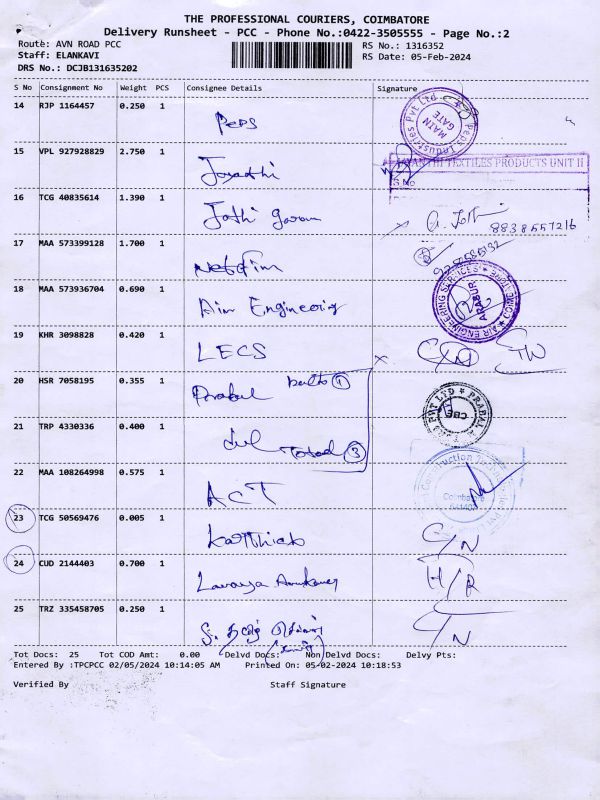 THE PROFESSIONAL COURIERS, COIMBATORE
Delivery Runsheet - PCC - Phone No.:0422-3505555 - Page No.:2
Route: AVN ROAD PCC
RS No.: 1316352
Staff: ELANKAVI
RS Date: 05-Feb-2024
DRS No.: DCJB131635202
S No Consignment No Weight PCS Consignee Details Signature
14 RJP 1164457 0.250 1 Peps
Peps Industries Pvt Ltd
MAIN GATE
15 VPL 927928829 2.750 1 Jayanthi
JAYANTHI TEXTILES PRODUCTS UNIT II
S.No
16 TCG 40835614 1.390 1 Jothi
8838557216
17 MAA 573399128 1.700 1 Netafim
18 MAA 573936704 0.690 1 Aim Engineering
AIR ENGINEERING SERVICES
ARASUR
19 KHR 3098828 0.420 1 LECS
20 HSR 7058195 0.355 1 Prabal
PVT LTD * PRABAL
CBE
21 TRP 4330336 0.400 1 Total 3
22 MAA 108264998 0.575 1 ACT
Construction
Coimbatore
23 TCG 50569476 0.005 1 Karthick C/N
24 CUD 2144403 0.700 1 Lavanya H/R
25 TRZ 335458705 0.250 1 C/N
Tot Docs: 25 Tot COD Amt: 0.00 Delvd Docs: Non Delvd Docs: Delvy Pts:
Entered By :TPCPCC 02/05/2024 10:14:05 AM Printed On: 05-02-2024 10:18:53
Verified By Staff Signature